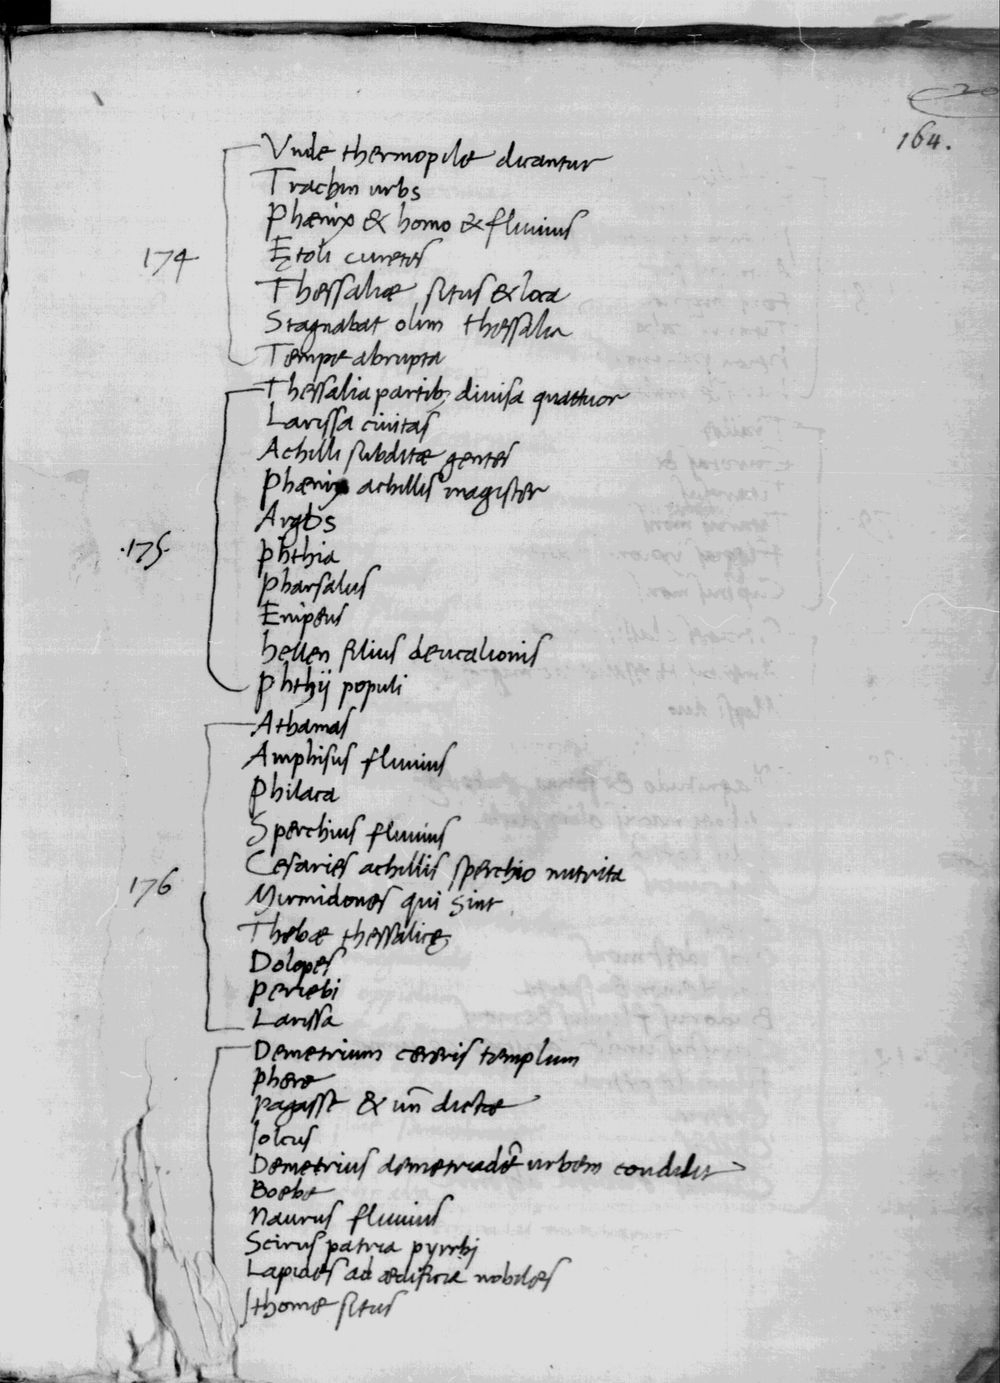 164.
Vnde thermopilæ dicantur
Trachin urbs
Phænix & homo & fluuius
174
Ętoli curetes
Thessaliæ situs & loca
Stagnabat olim thessalia
Tempe abrupta
Thessalia partibꝫ diuisa quattuor
Larissa ciuitas
Achilli subditæ gentes
Phænix achillis magister
Argos
.175.
Phthia
Pharsalus
Enipeus
hellen filius deucalionis
Phthij populi
Athamas
Amphisus fluuius
Philaca
Sperchius fluuius
Cesaries achillis sperchio nutrita
176
Myrmidones qui sint
Thebæ thessalicę
Dolopes
Perrebi
Larissa
Demetrium cereris templum
Pheræ
Pagasæ & uñ dictæ
Iolcus
Demetrius demetriadē urbem condidit
Boebe
Naurus fluuius
Scirus patria pyrrhi
Lapides ad ædificia nobiles
Ithome situs